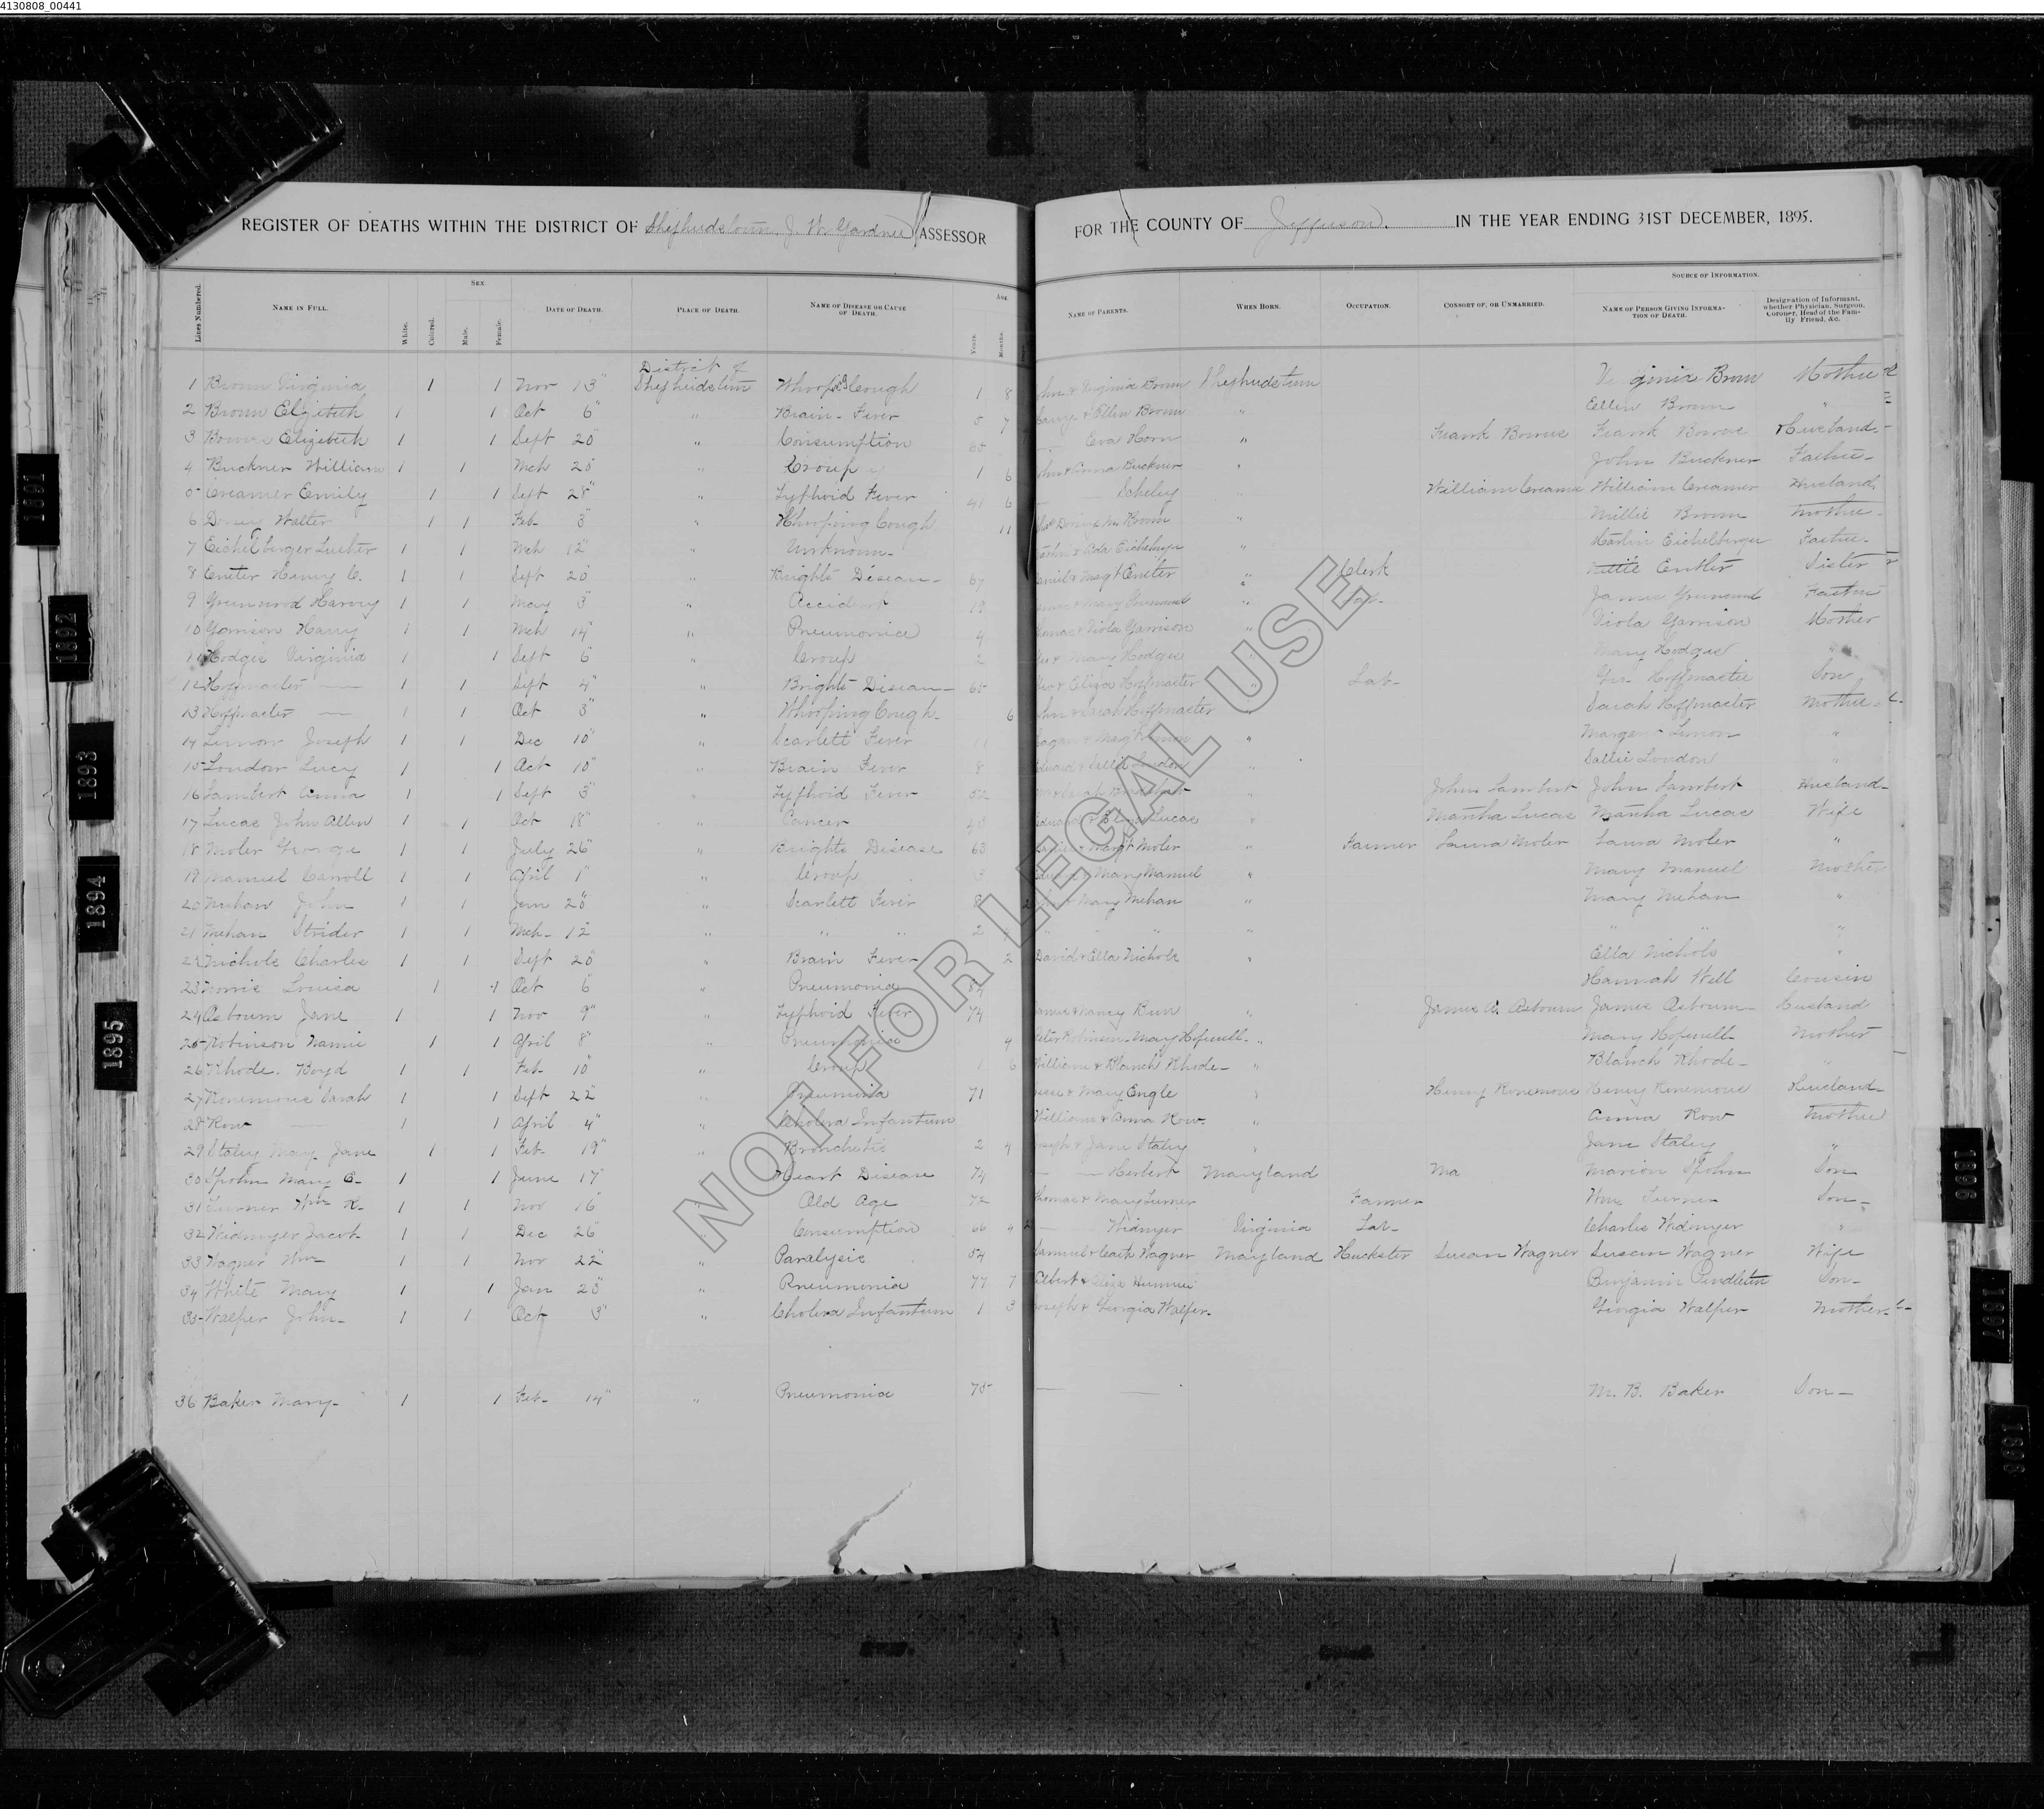 4130808_00441
REGISTER OF DEATHS WITHIN THE DISTRICT OF Shepherdstown, J. W. Gardner ASSESSOR FOR THE COUNTY OF Jefferson. IN THE YEAR ENDING 31ST DECEMBER, 1895.
Lines Numbered. NAME IN FULL. White. Colored. SEX Male. Female. DATE OF DEATH. PLACE OF DEATH. NAME OF DISEASE OR CAUSE OF DEATH. AGE Years. Months. Days. NAME OF PARENTS. WHEN BORN. OCCUPATION. CONSORT OF, OR UNMARRIED. SOURCE OF INFORMATION. NAME OF PERSON GIVING INFORMATION OF DEATH. Designation of Informant, whether Physician, Surgeon, Coroner, Head of the Family Friend, &c.
District of
1 Brown Virginia 1 1 Nov 13" Shepherdstown Whooping Cough 1 8 John & Virginia Brown Shepherdstown Virginia Brown Mother
2 Brown Elizabeth 1 1 Oct 6" " Brain Fever 5 7 & Ellen Brown " Ellen Brown "
3 Bowers Elizabeth 1 1 Sept 20" " Consumption 65 Eva Horn " Frank Bowers Frank Bowers Husband
4 Buckner William 1 1 Mch 20" " Croup 1 6 John & Anna Buckner " John Buckner Father
5 Creamer Emily 1 1 Sept 28" " Typhoid Fever 41 6 — William Creamer William Creamer Husband
6 Walter 1 1 Feb 3" " Whooping Cough 11 Brown " Millie Brown Mother
7 Eichelberger Luther 1 1 Mch 12" " Unknown & Ada Eichelberger " Eichelberger Father
8 Entler Henry C. 1 1 Sept 20" " Brights Disease 67 Daniel & Magt Entler " Clerk Entler Sister
9 Greenwood Harvey 1 1 May 3" " Accident 19 & Mary Greenwood " James Greenwood Father
10 Garrison Harry 1 1 Mch 14" " Pneumonia 4 Thomas & Viola Garrison " Viola Garrison Mother
11 Hodges Virginia 1 1 Sept 6" " Croup 2 & Mary Hodges " Mary Hodges "
12 Hoffmaster — 1 1 Sept 4" " Brights Disease 65 & Eliza Hoffmaster " Lab Geo Hoffmaster Son
13 Hoffmaster — 1 1 Oct 3" " Whooping Cough 6 John & Sarah Hoffmaster " Sarah Hoffmaster Mother
14 Lemon Joseph 1 1 Dec 10" " Scarlett Fever 11 & Magt Lemon " Margaret Lemon "
15 London Lucy 1 1 Oct 10" " Brain Fever 8 Edward & Sallie London " Sallie London "
16 Lambert Anna 1 1 Sept 3" " Typhoid Fever 52 " John Lambert John Lambert Husband
17 Lucas John Allen 1 1 Oct 18" " Cancer Edward & Lucas " Martha Lucas Martha Lucas Wife
18 Moler George 1 1 July 26" " Brights Disease 63 & Magt Moler " Farmer Laura Moler Laura Moler "
19 Manuel Carroll 1 1 April 1" " Croup 3 & Mary Manuel " Mary Manuel Mother
20 Mehan John 1 1 Jan 20" " Scarlett Fever 8 & Mary Mehan " Mary Mehan "
21 Mehan Strider 1 1 Mch 12" " " " 2 " " " " " " "
22 Nichols Charles 1 1 Sept 20" " Brain Fever 2 David & Ella Nichols " Ella Nichols "
23 Norris Louisa 1 1 Oct 6" " Pneumonia Hannah Well Cousin
24 Osbourn Jane 1 1 Nov 9" " Typhoid Fever 74 James & Nancy " James A. Osbourn James Osbourn Husband
25 Robinson Nannie 1 1 April 8" " Pneumonia 9 Peter Robinson Mary Hopewell " Mary Hopewell Mother
26 Rhode Boyd 1 1 Feb 10" " Croup 1 6 William & Blanch Rhode " Blanch Rhode "
27 Ronemous Sarah 1 1 Sept 22" " Pneumonia 71 Jesse & Mary Engle " Henry Ronemous Henry Ronemous Husband
28 Row — 1 1 April 4" " Cholera Infantum William & Anna Row " Anna Row Mother
29 Staley May Jane 1 1 Feb 19" " Bronchetis 2 4 Joseph & Jane Staley " Jane Staley "
30 Spohn Mary C. 1 1 June 17" " Heart Disease 74 — Herbert Maryland Ma Marion Spohn Son
31 Turner Wm H. 1 1 Nov 16" " Old Age 72 Thomas & Mary Turner Farmer Wm Turner Son
32 Widmyer Jacob 1 1 Dec 26" " Consumption 66 4 — Widmyer Virginia Lab Charles Widmyer "
33 Wagner Wm 1 1 Nov 22" " Paralysis 54 Samuel & Cath Wagner Maryland Huckster Susan Wagner Susan Wagner Wife
34 White Mary 1 1 Jan 23" " Pneumonia 77 7 Albert & Eliza Benjamin Pendleton Son
35 Walper John 1 1 Oct 3" " Cholera Infantum 1 3 Joseph & Georgia Walper Georgia Walper Mother
36 Baker Mary 1 1 Feb 14" " Pneumonia 75 — — M. B. Baker Son
NOT FOR LEGAL USE
1891
1892
1893
1894
1895
1896
1897
1898